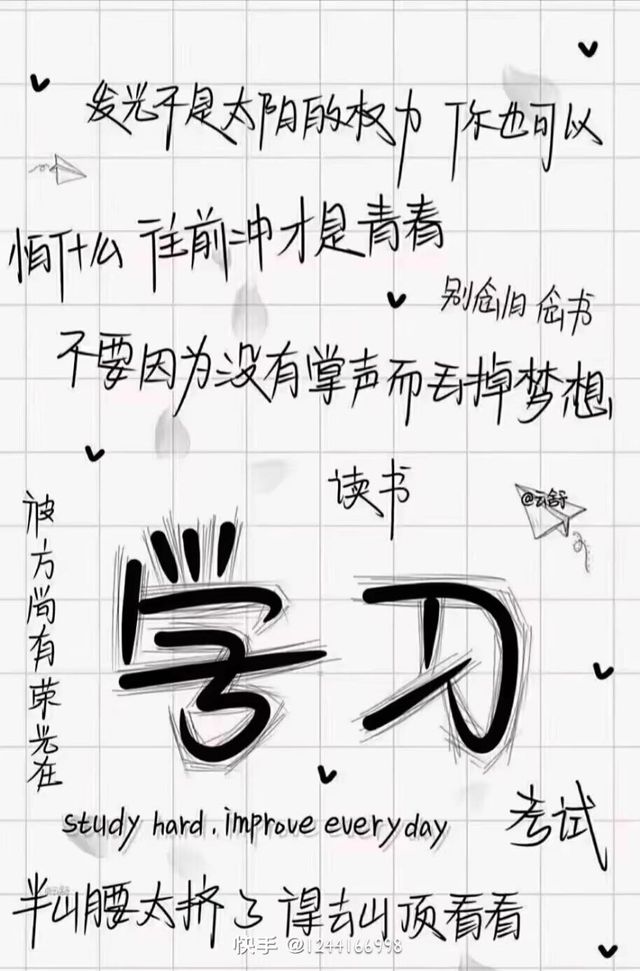 发光不是太阳的权力 你也可以
怕什么 往前冲才是青春
别念旧 念书
不要因为没有掌声而丢掉梦想
读书
@云舒
彼方尚有荣光在
学习
study hard. improve everyday
考试
半山腰太挤了 得去山顶看看
快手 @1244166998